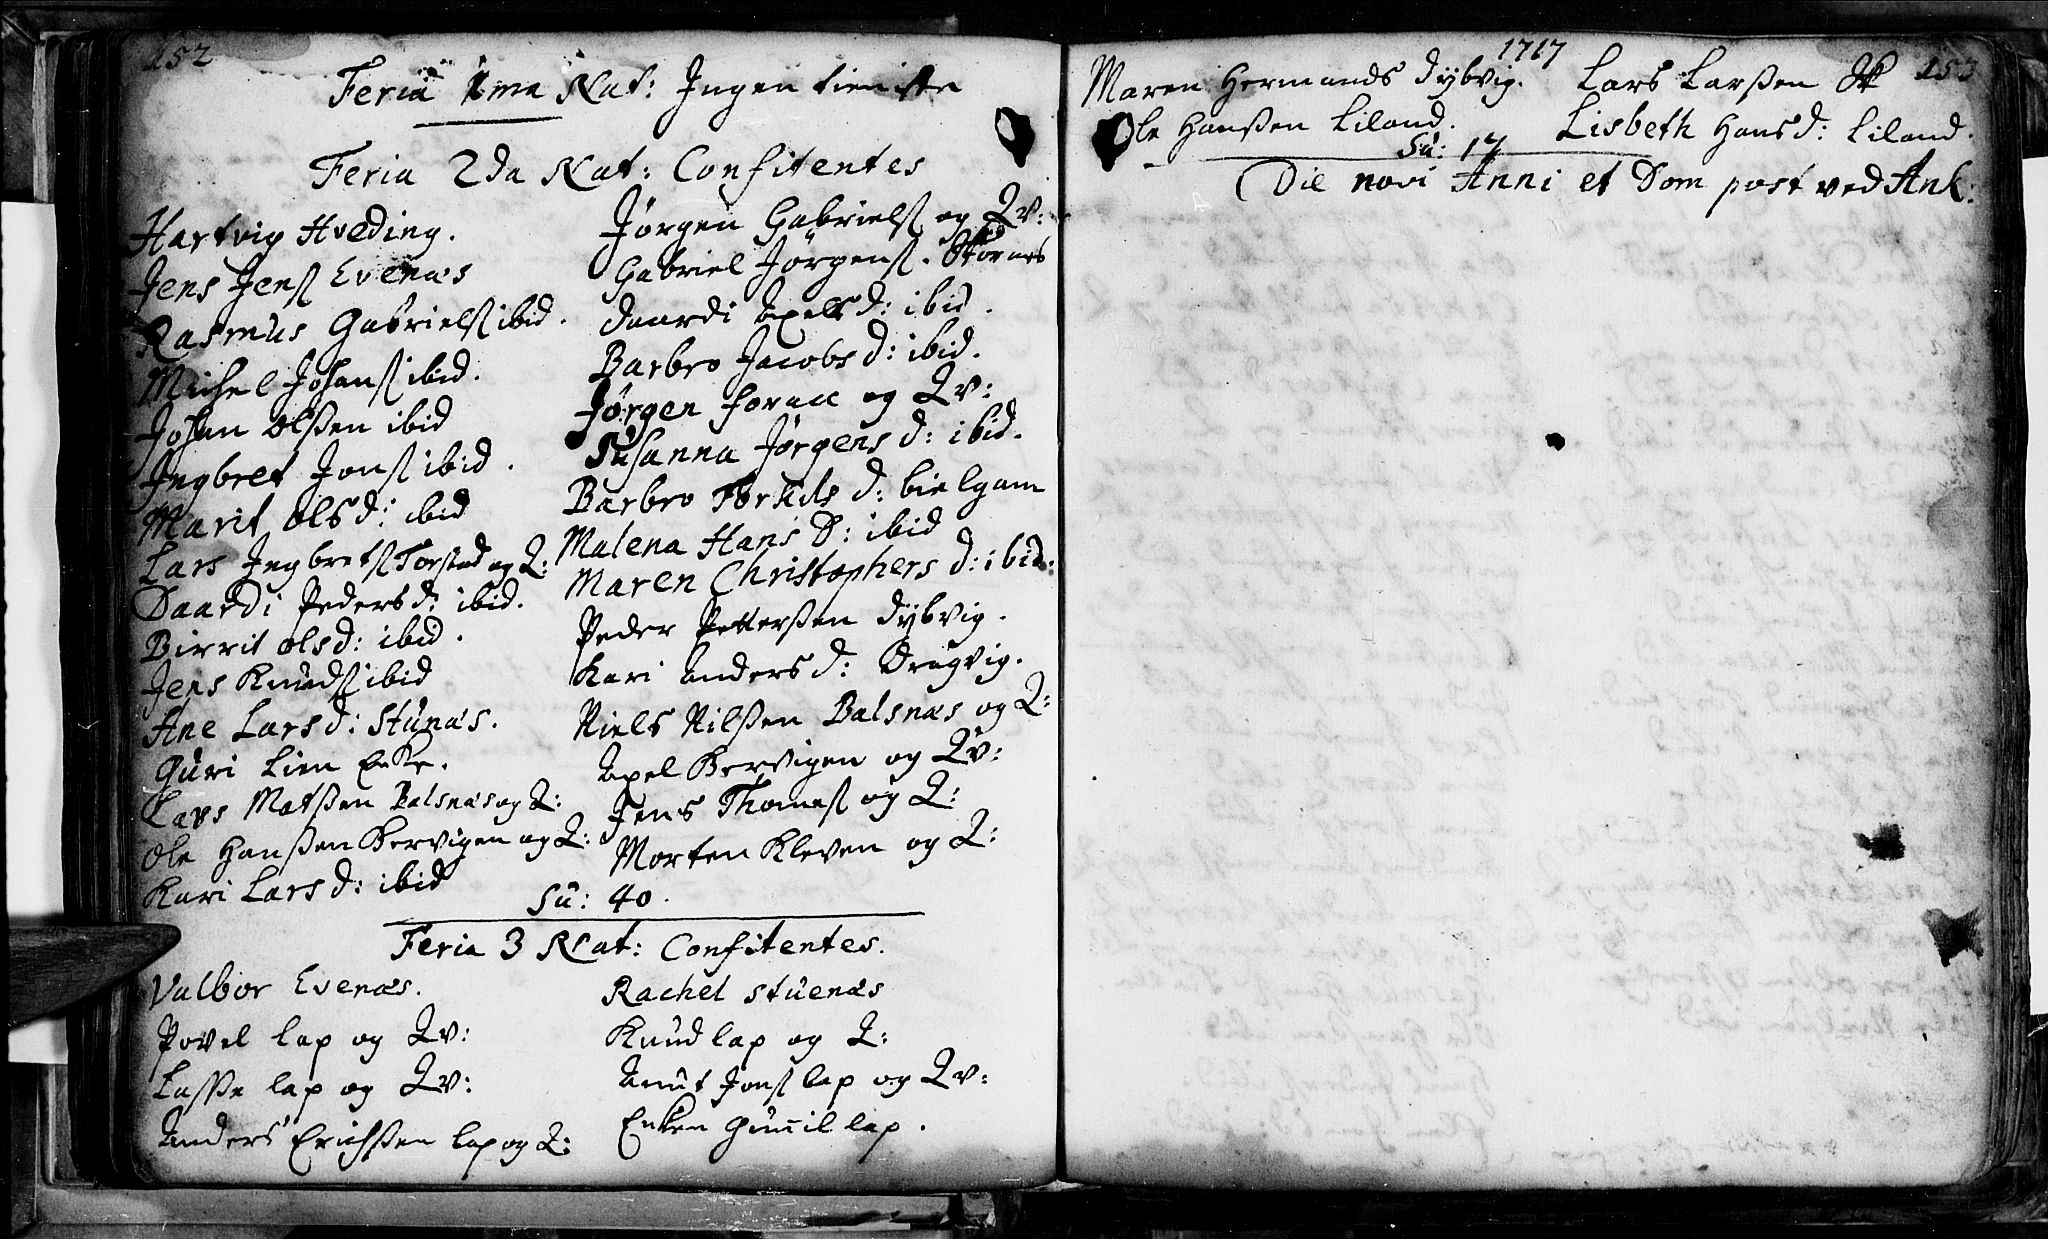 152
Feria 1ma Nat: Ingen tieniste
Feria 2da Nat: Confitentes
Hartvig Hveding.
Jens Jens Evenæs
Rasmus Gabriels ibid.
Michel Johans ibid.
Johan Olsen ibid
Ingbret Jons ibid.
Marit Olsd: ibid
Lars Ingbrets Torstad og Q:
Daardi Pedersd: ibid.
Birrit Olsd: ibid.
Jens Knuds ibid
Ane Larsd: Stunæs.
Guri Lien Enke.
Lars Matsen Balsnæs og Q:
Ole Hansen Bervigen og Q:
Kari Larsd: ibid
Jørgen Gabriels og Qv:
Gabriel Jørgens.
Daardi Axelsd: ibid.
Barbro Jacobsd: ibid.
Jørgen og Qv:
Susanna Jørgensd: ibid.
Barbro d: bielgam
Malena Hans D: ibid
Maren Christophers d: ibid.
Peder Pettersen Dybvig.
Kari Andersd: Dragvig.
Niels Nilsen Balsnæs og Q:
Axel Bervigen og Qv:
Jens Thomas og Q:
Morten Kleven og Q:
Su: 40.
Feria 3 Nat: Confitentes.
Valbor Evenæs.
Povel lap og Qv:
Lasse lap og Qv:
Anders Erichsen lap og Q:
Rachel Stuenæs
Knud lap og Q:
Knut Jons lap og Qv:
Enken Gunil lap.
1717
153
Maren Hermands Dybvig. Lars Larsen
Ole Hansen Liland. Lisbeth Hansd: Liland.
Su: 17
Die novi Anni et Dom post ved Ank: